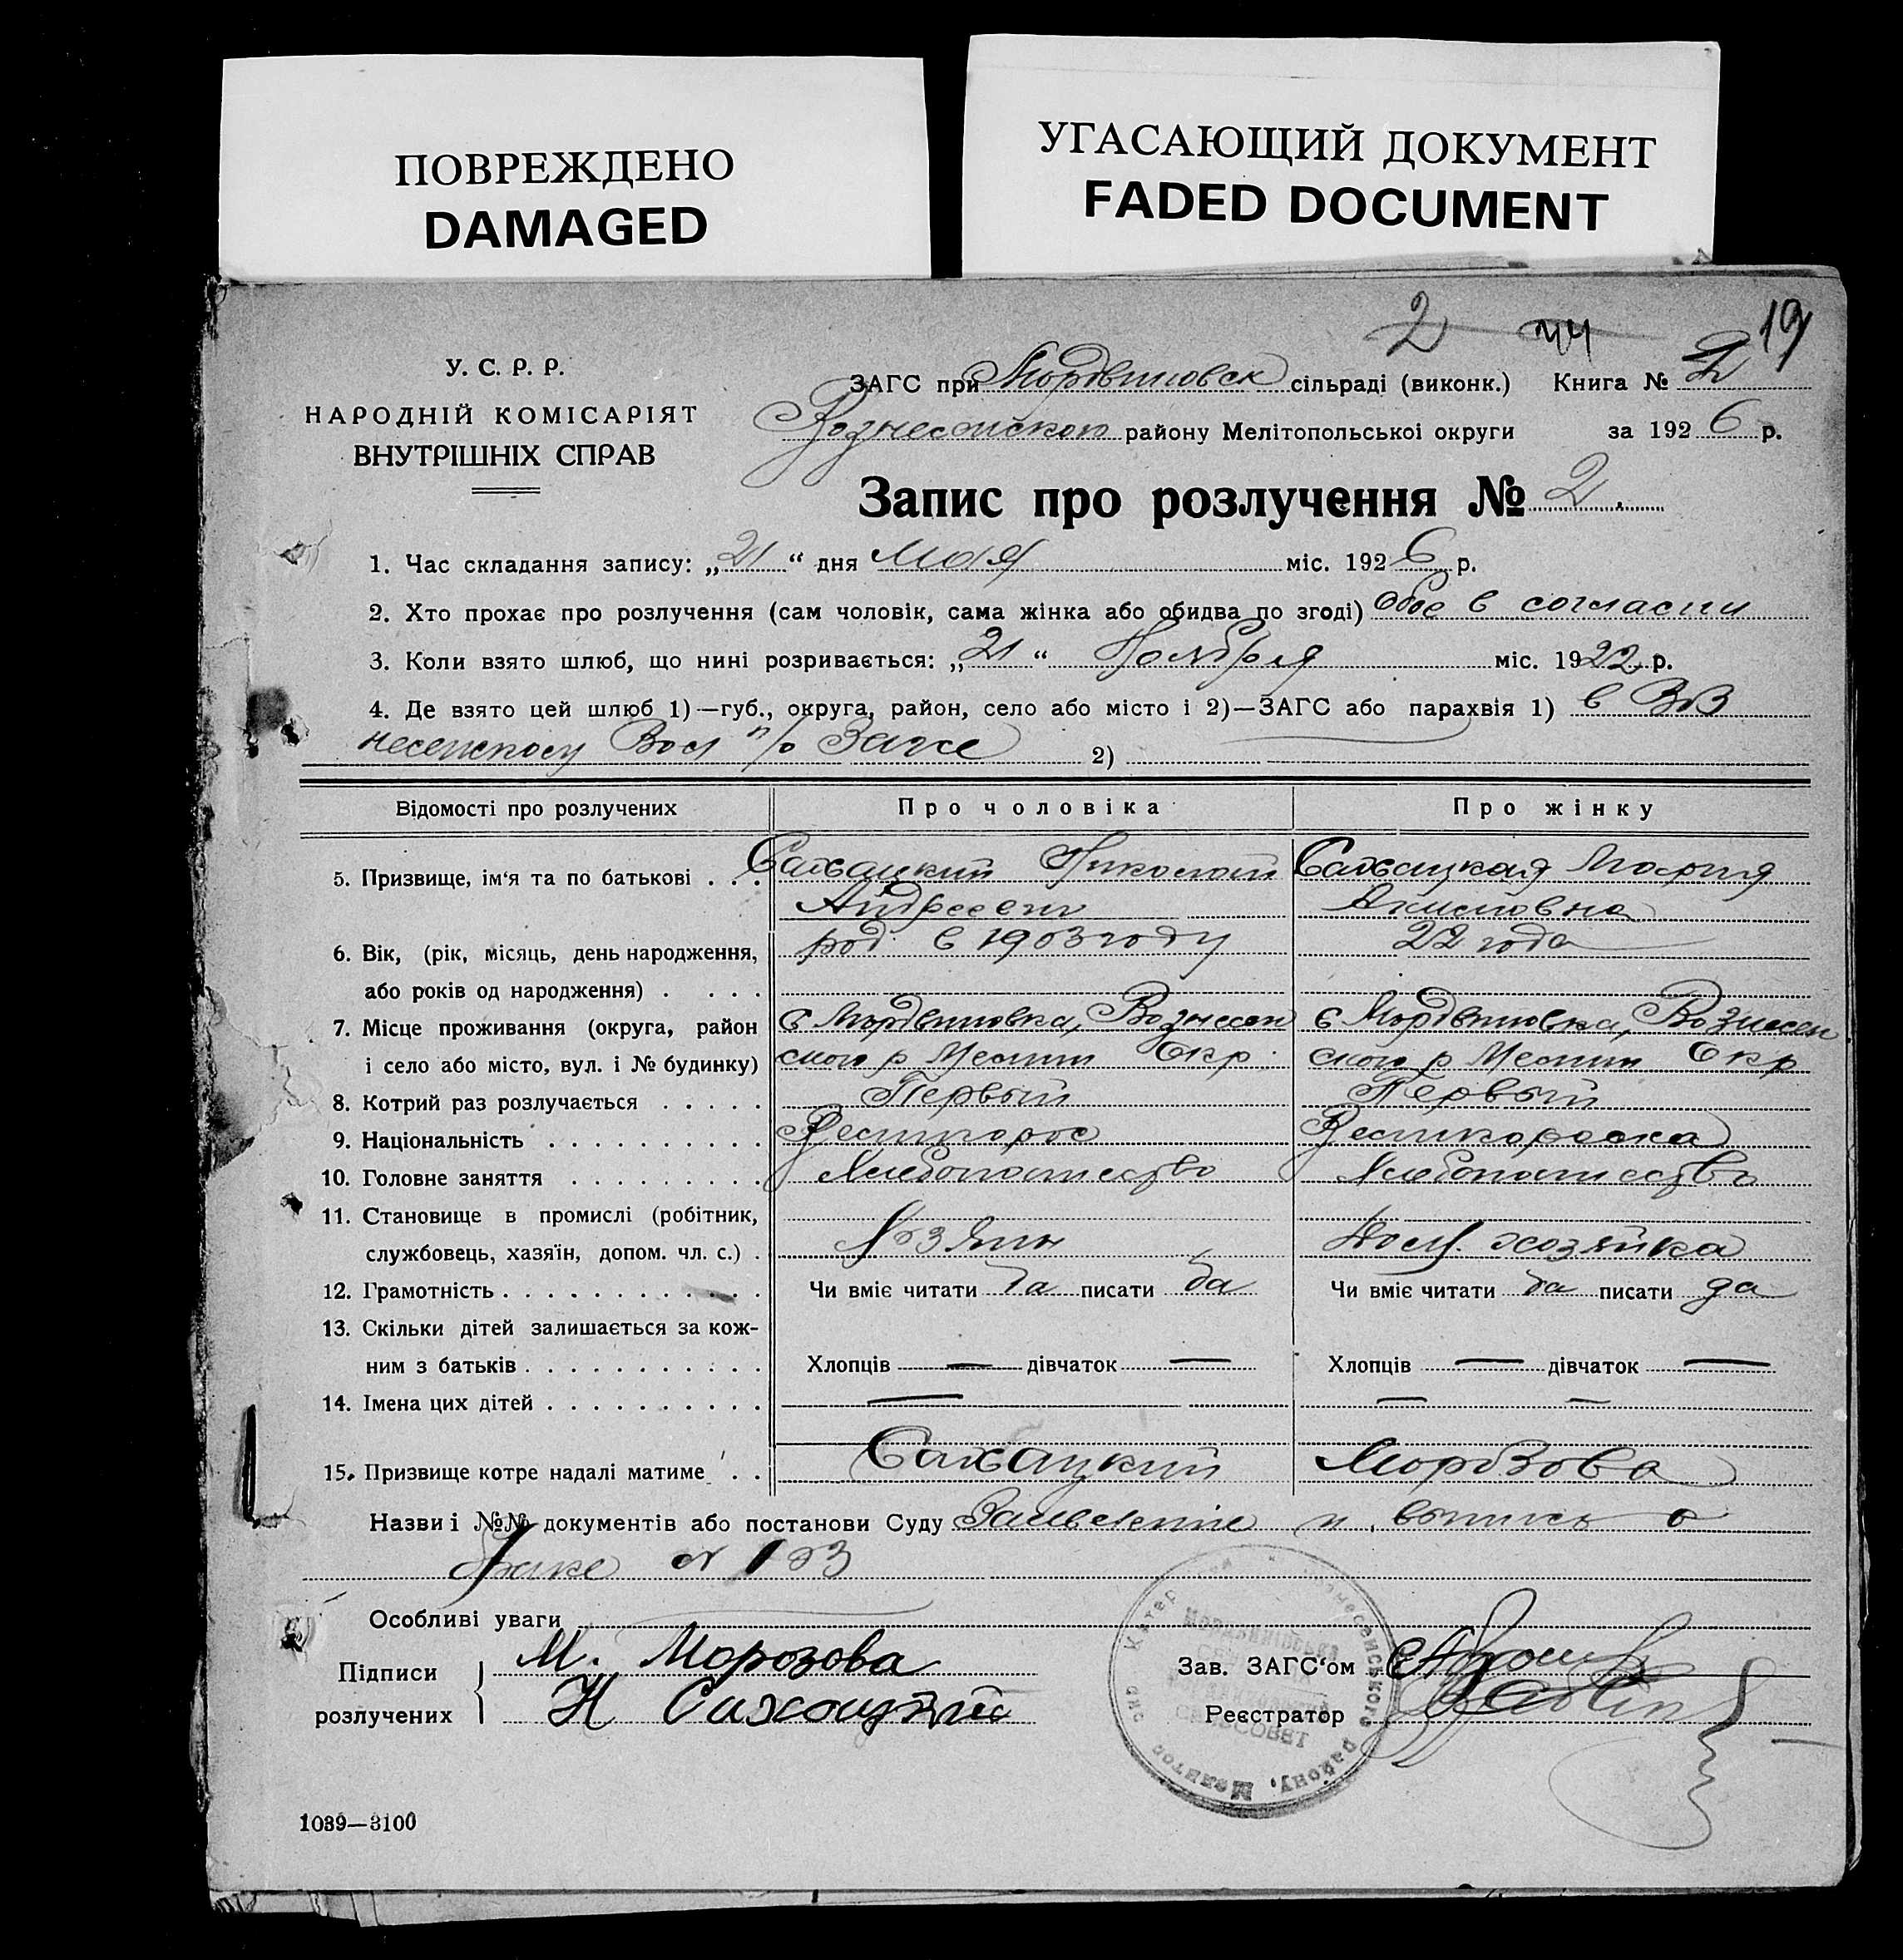 ПОВРЕЖДЕНО
DAMAGED
УГАСАЮЩИЙ ДОКУМЕНТ
FADED DOCUMENT
2 44 19
У. С. Р. Р.
НАРОДНІЙ КОМІСАРІЯТ
ВНУТРІШНІХ СПРАВ
ЗАГС при Мордвиновск сільраді (виконк.) Книга № 2
Вознесенского району Мелітопольської округи за 1926 р.
Запис про розлучення № 2.
1. Час складання запису: „21“ дня мая міс. 1926 р.
2. Хто прохає про розлучення (сам чоловік, сама жінка або обидва по згоді) Обое в согласии
3. Коли взято шлюб, що нині розривається: „21“ Ноября міс. 1922 р.
4. Де взято цей шлюб 1)—губ., округа, район, село або місто і 2)—ЗАГС або парахвія 1) в Воз
несенском Вол п/о Загсе 2)
Відомості про розлучених
Про чоловіка
Про жінку
5. Призвище, ім'я та по батькові . . . Сахацкий Николай Сахацкая Мария
Андреевич Акимовна
6. Вік, (рік, місяць, день народження, род. в 1903 году 22 года
або років од народження) . . . .
7. Місце проживання (округа, район с Мордвиновка, Вознесен с Мордвиновка, Вознесен
і село або місто, вул. і № будинку) ского р Мелит Окр. ского р Мелит Окр
8. Котрий раз розлучається . . . . . Первый Первый
9. Національність . . . . . . . . . . Великорос Великороска
10. Головне заняття . . . . . . . . . Хлебопашество Хлебопашество
11. Становище в промислі (робітник,
службовець, хазяїн, допом. чл. с.) . Хозяин Дом. хозяйка
12. Грамотність . . . . . . . . . . . . Чи вміє читати да писати да Чи вміє читати да писати да
13. Скільки дітей залишається за кож-
ним з батьків . . . . . . . . . . . Хлопців — дівчаток — Хлопців — дівчаток —
14. Імена цих дітей . . . . . . . . . . — — —
15. Призвище котре надалі матиме . . Сахацкий Морозова
Назви і №№ документів або постанови Суду Заявление и выпись о
браке № 133
Особливі уваги
Підписи М. Морозова Зав. ЗАГС'ом
розлучених Н Сахацкий Реєстратор
СЕЛЬСОВЕТ
1039—3100